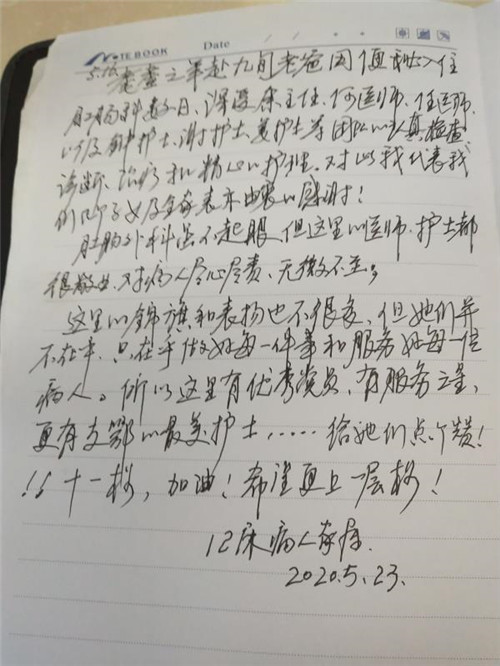 NOTE BOOK Date
耄耋之年赴九旬老爸因便血入住
肛肠科数日,深受 主任、何医师、任医师
以及 护士、谢护士、姜护士等团队的认真检查
诊断、治疗和精心的护理。对此我代表我
们几个子女及全家表示由衷的感谢!
肛肠外科虽不起眼 但这里的医师、护士都
很敬业 对病人尽心尽责、无微不至。
这里的锦旗和表扬也不很多,但她们并
不在乎,只在乎做好每一件事和服务好每一位
病人。所以这里有优秀党员,有服务之星,
更有支鄂的最美护士,……给她们点个赞!
十一楼,加油!希望更上一层楼!
12床病人家属
2020.5.23.